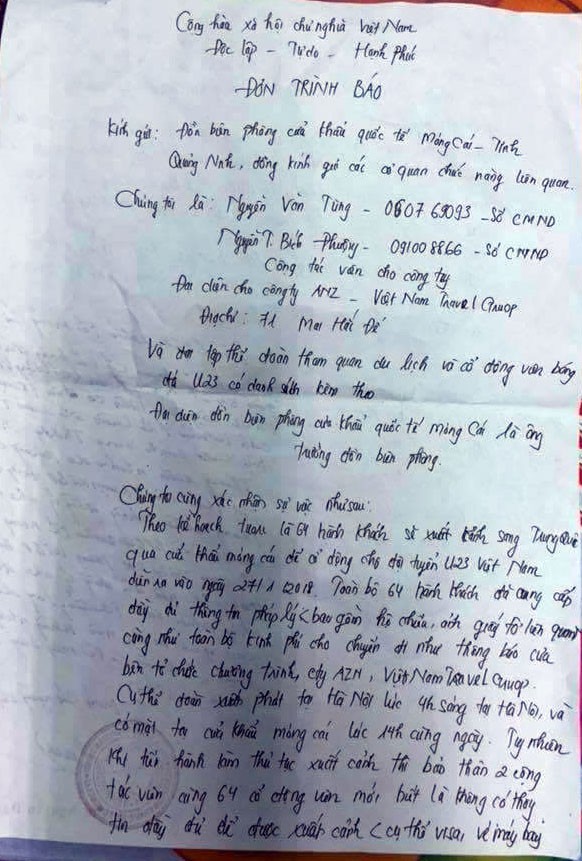 Cộng hòa xã hội chủ nghĩa Việt Nam
Độc lập - Tự do - Hạnh Phúc
ĐƠN TRÌNH BÁO
Kính gửi: Đồn biên phòng cửa khẩu quốc tế Móng Cái - Tỉnh
Quảng Ninh, đồng kính gửi các cơ quan chức năng liên quan.
Chúng tôi là: Nguyễn Văn Tùng - 060769093 - Số CMND
Nguyễn T. Bích Phượng - 091008866 - Số CMND
Cộng tác viên cho công ty
Đại diện cho công ty ANZ - Việt Nam Travel Gruop
Địa chỉ: 71 Mai Hắc Đế
Và đại tập thể đoàn tham quan du lịch và cổ động viên bóng
đá U23 có danh sách kèm theo
Đại diện đồn biên phòng cửa khẩu quốc tế Móng Cái là ông
trưởng đồn biên phòng.
Chúng ta cùng xác nhận sự việc như sau:
Theo kế hoạch là 64 hành khách sẽ xuất cảnh sang Trung Quốc
qua cửa khẩu móng cái để cổ động cho đội tuyển U23 Việt Nam
diễn ra vào ngày 27/1/2018. Toàn bộ 64 hành khách đã cung cấp
đầy đủ thông tin pháp lý < bao gồm hộ chiếu, ảnh giấy tờ liên quan>
cũng như toàn bộ kinh phí cho chuyến đi như thông báo của
bên tổ chức chương trình, cty AZN, Việt Nam Travel Gruop.
Cụ thể đoàn xuất phát tại Hà Nội lúc 4h sáng tại Hà Nội, và
có mặt tại cửa khẩu móng cái lúc 14h cùng ngày. Tuy nhiên
khi tiến hành làm thủ tục xuất cảnh thì bản thân 2 cộng
tác viên cùng 64 cổ động viên mới biết là không có thông
tin đầy đủ để được xuất cảnh < cụ thể visa, vé máy bay